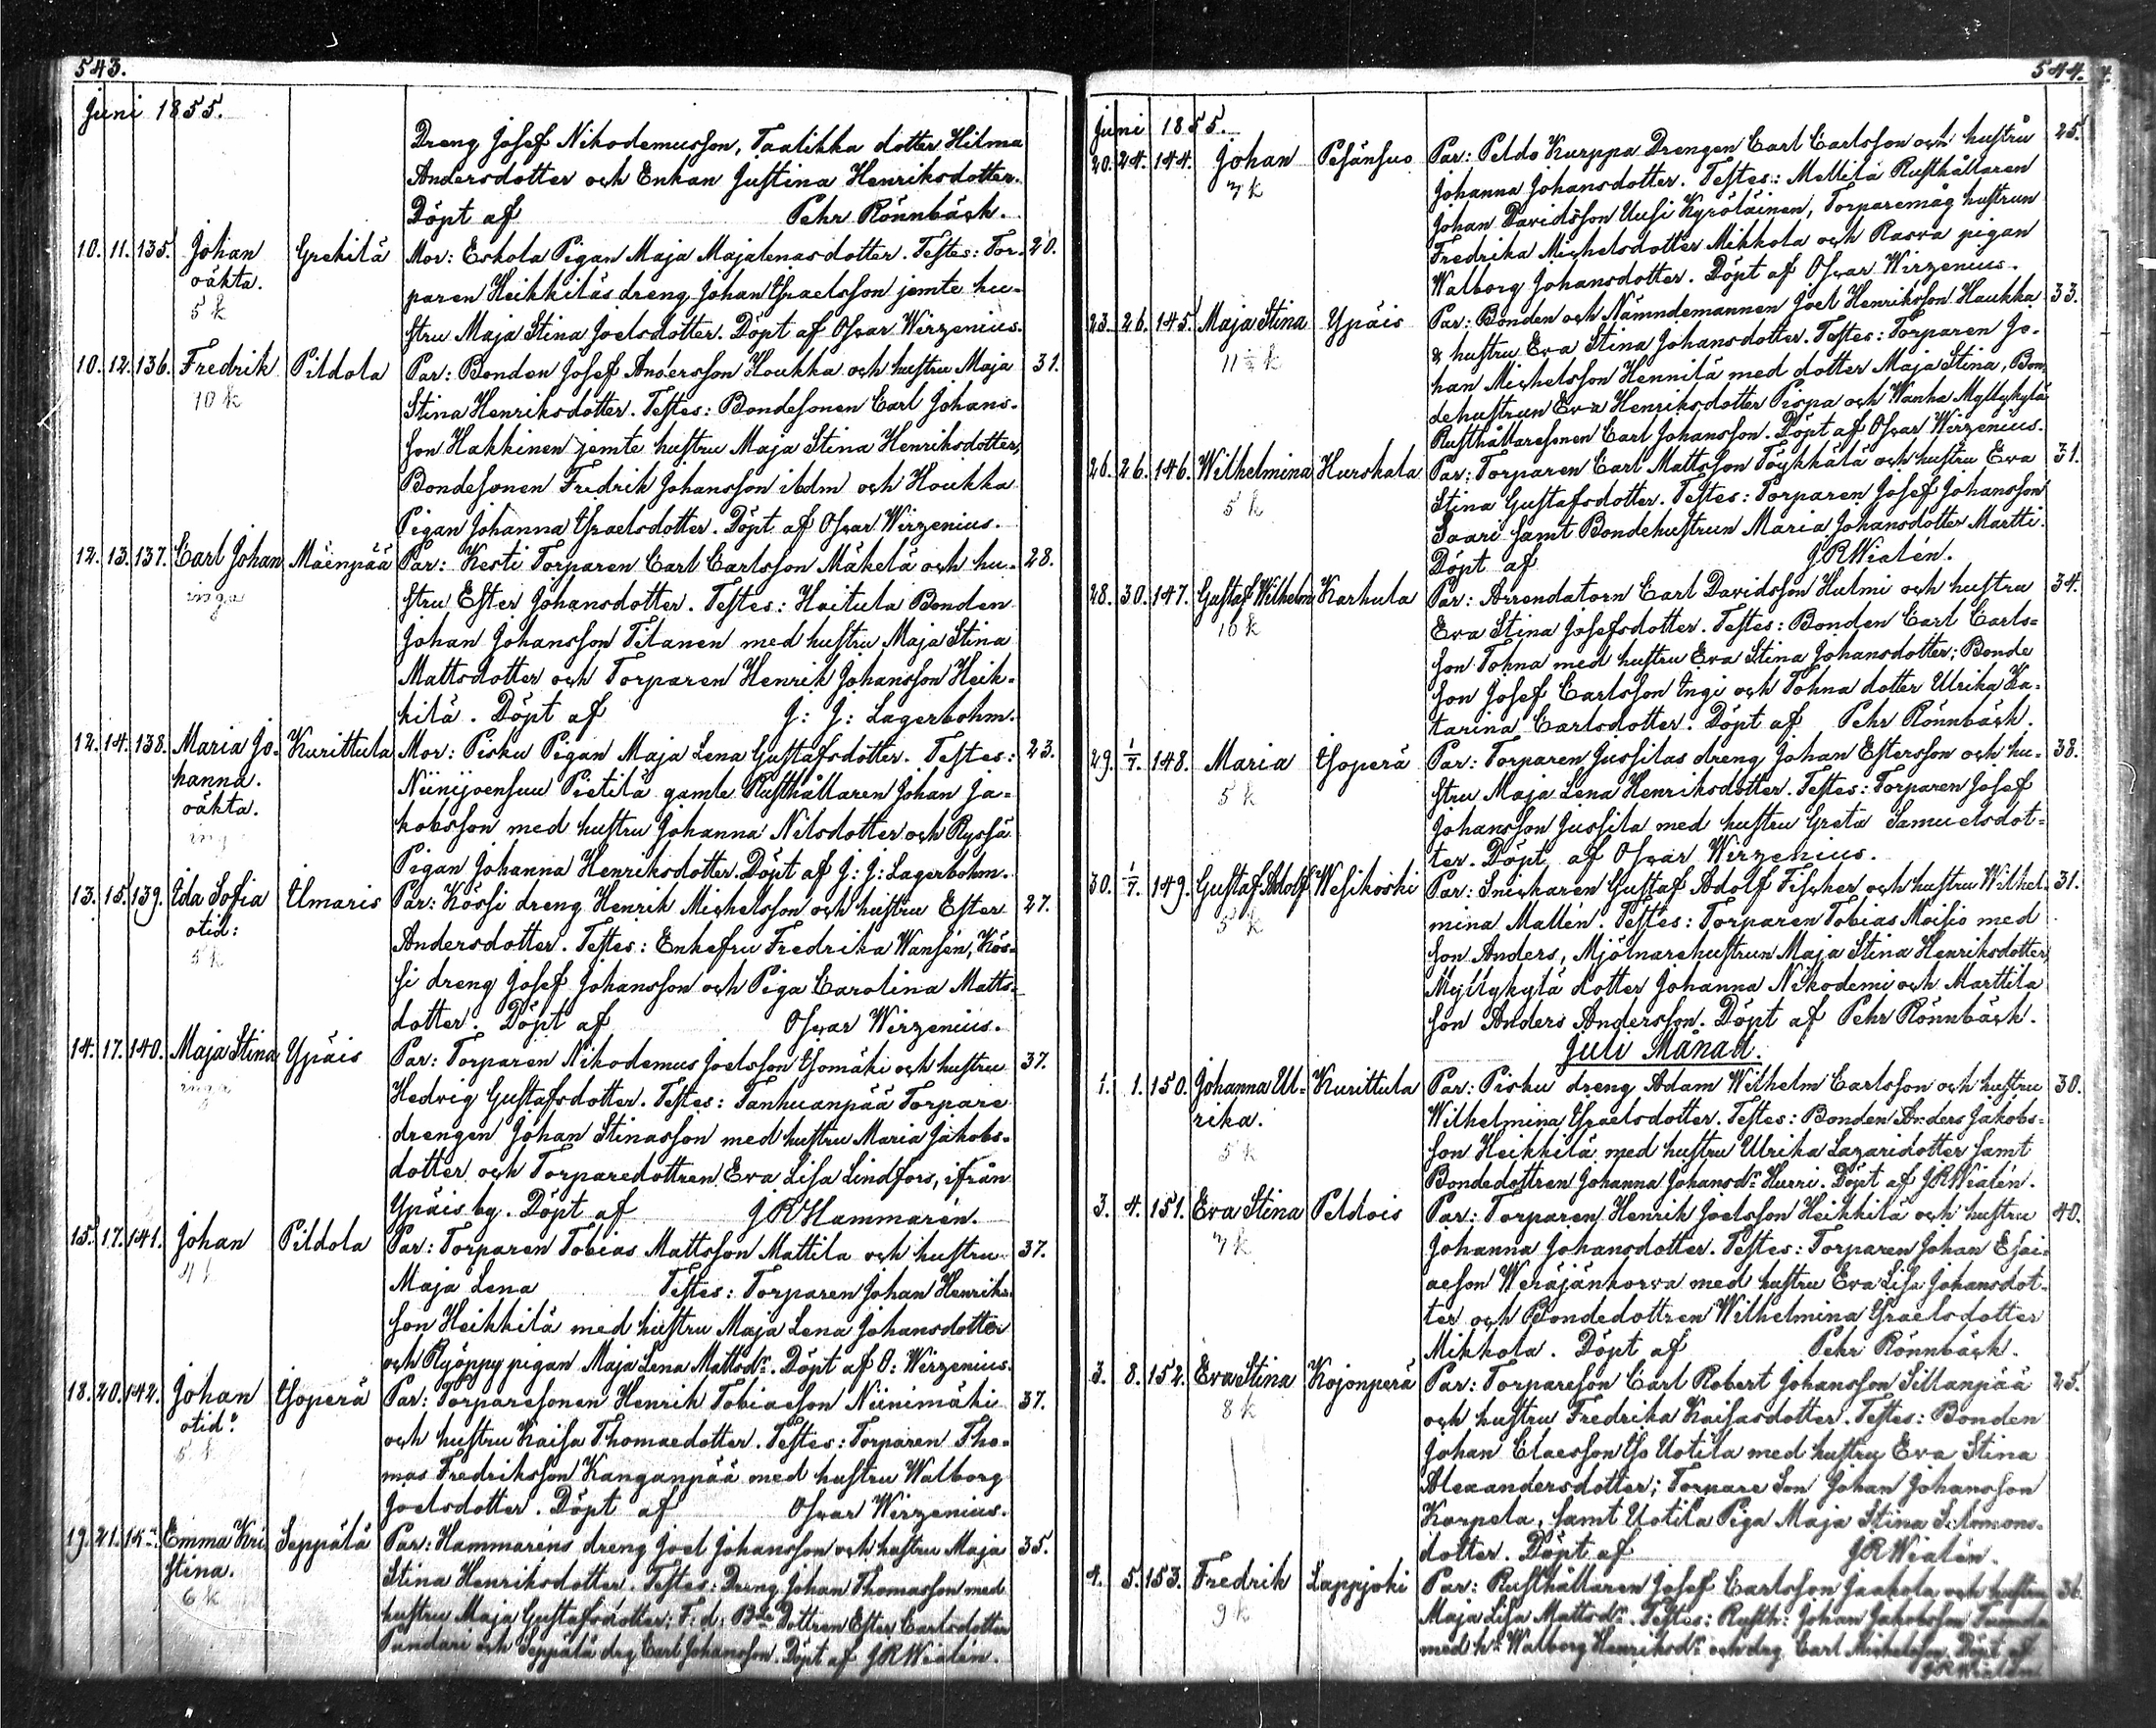 543.
Juni 1855.
Dreng Josef Nikodemusson, Taalikka dotter Hilma
Andersdotter och Enkan Justina Henriksdotter.
Döpt af Pehr Rönnbäck.
10. 11. 135. Johan Grekilä Mor: Eskola Pigan Maja Majalenasdotter. Testes: Tor- 20.
oäkta. paren Heikkiläs dreng Johan Israelsson jemte hu-
5 k stru Maja Stina Joelsdotter. Döpt af Oscar Wirzenius.
10. 12. 136. Fredrik Pildola Par: Bonden Josef Andersson Houkka och hustru Maja 31.
10 k Stina Henriksdotter. Testes: Bondesonen Carl Johans-
son Hakkinen jemte hustru Maja Stina Henriksdotter,
Bondesonen Fredrik Johansson ibdm och Houkka
Pigan Johanna Israelsdotter. Döpt af Oscar Wirzenius.
12. 13. 137. Carl Johan Mäenpää Par: Kesti Torparen Carl Carlsson Mäkelä och hu- 28.
inga stru Ester Johansdotter. Testes: Haitula Bonden
Johan Johansson Titanen med hustru Maja Stina
Mattsdotter och Torparen Henrik Johansson Heik-
kilä. Döpt af J: J: Lagerbohm.
12. 14. 138. Maria Jo- Kurittula Mor: Pisku Pigan Maja Lena Gustafsdotter. Testes: 23.
hanna. Niinijoensuu Pietilä gamle Rusthållaren Johan Ja-
oäkta. kobsson med hustru Johanna Nilsdotter och Ryssä
Pigan Johanna Henriksdotter. Döpt af J: J: Lagerbohm.
13. 15. 139. Ida Sofia Ilmaris Par: Kössi dreng Henrik Michelsson och hustru Ester 27.
otid: Andersdotter. Testes: Enkefru Fredrika Wansén, Kös-
5 k si dreng Josef Johansson och Piga Carolina Matts-
dotter. Döpt af Oscar Wirzenius.
14. 17. 140. Maja Stina Ypäis Par: Torparen Nikodemus Joelsson Isomäki och hustru 37.
inga Hedvig Gustafsdotter. Testes: Tanhuanpää Torpare
drengen Johan Stinasson med hustru Maria Jakobs-
dotter och Torparedottren Eva Lisa Lindfors, ifrån
Ypäis by. Döpt af J R Hammarén.
15. 17. 141. Johan Pildola Par: Torparen Tobias Mattsson Mattila och hustru 37.
4 k Maja Lena Testes: Torparen Johan Henriks-
son Heikkilä med hustru Maja Lena Johansdotter
och Ryöppy pigan Maja Lena Mattsdr. Döpt af O: Wirzenius.
18. 20. 142. Johan Isoperä Par: Torparesonen Henrik Tobiasson Niinimäki 37.
otid: och hustru Kaisa Thomaedotter. Testes: Torparen Tho-
5 k mas Fredriksson Kanganpää med hustru Walborg
Joelsdotter. Döpt af Oscar Wirzenius.
19. 21. Emma Kri Seppälä Par: Hammaréns dreng Joel Johansson och hustru Maja 35.
stina. Stina Henriksdotter. Testes: Dreng Johan Thomasson med
6 k hustru Maja Gustafsdotter; F. d. Bde Dottren Ester Carlsdotter
Pundari och Seppälä drg Carl Johansson. Döpt af J R Wialén.
544.
Juni 1855.
20. 24. 144. Johan Pesänsuo Par: Peldo Kurppa Drengen Carl Carlsson och hustru 25.
7 k Johanna Johansdotter. Testes: Mellilä Rusthållaren
Johan Davidsson Uusi Kyröläinen, Torparemåg hustrun
Fredrika Michelsdotter Mikkola och Rasva pigan
Walborg Johansdotter. Döpt af Oscar Wirzenius.
23. 26. 145. Maja Stina Ypäis Par: Bonden och Nämndemannen Joel Henriksson Haukka 33.
11 ½ k & hustru Eva Stina Johansdotter. Testes: Torparen Jo-
han Michelsson Hennilä med dotter Maja Stina, Bon-
dehustrun Eva Henriksdotter Pispa och Wanha Myllykylä
Rusthållaresonen Carl Johansson. Döpt af Oscar Wirzenius.
26. 26. 146. Wilhelmina Hurskala Par: Torparen Carl Mattsson Töykkälä och hustru Eva 31.
5 k Stina Gustafsdotter. Testes: Torparen Josef Johansson
Saari samt Bondehustrun Maria Johansdotter Martti.
Döpt af J R Wialén.
28. 30. 147. Gustaf Wilhelm Karhula Par: Arrendatorn Carl Davidsson Hulmi och hustru 34.
16 k Eva Stina Josefsdotter. Testes: Bonden Carl Carls-
son Tohna med hustru Eva Stina Johansdotter; Bonde
son Josef Carlsson Ingi och Tohna dotter Ulrika Ka-
tarina Carlsdotter. Döpt af Pehr Rönnbäck.
29. 1/7. 148. Maria Isoperä Par: Torparen Jussilas dreng Johan Estersson och hu- 38.
5 k stru Maja Lena Henriksdotter. Testes: Torparen Josef
Johansson Jussila med hustru Greta Samuelsdot-
ter. Döpt af Oscar Wirzenius.
30. 1/7. 149. Gustaf Adolf Wesikoski Par: Snickaren Gustaf Adolf Fischer och hustru Wilhel- 31.
5 k mina Mallén. Testes: Torparen Tobias Moisio med
son Anders, Mjölnarehustrun Maja Stina Henriksdotter
Myllykylä dotter Johanna Nikodemi och Marttila
son Anders Andersson. Döpt af Pehr Rönnbäck.
Juli Månad.
1. 1. 150. Johanna Ul- Kurittula Par: Pisku dreng Adam Wilhelm Carlsson och hustru 30.
rika. Wilhelmina Israelsdotter. Testes: Bonden Anders Jakobs-
5 k son Heikkilä med hustru Ulrika Lazaridotter samt
Bondedottren Johanna Johansdr Hurri. Döpt af J R Wialén.
3. 4. 151. Eva Stina Peldois Par: Torparen Henrik Joelsson Heikkilä och hustru 40.
7 k Johanna Johansdotter. Testes: Torparen Johan Esai-
aeson Weräjänkorva med hustru Eva Lisa Johansdot-
ter och Bondedottren Wilhelmina Israelsdotter
Mikkola. Döpt af Pehr Rönnbäck.
3. 8. 152. Eva Stina Kojonperä Par: Torpareson Carl Robert Johansson Sillanpää 25.
8 k och hustru Fredrika Kaisasdotter. Testes: Bonden
Johan Claesson Iso Uotila med hustru Eva Stina
Alexandersdotter; Torpare Son Johan Johansson
Korpela, samt Uotila Piga Maja Stina Salomons-
dotter. Döpt af J R Wialén.
4. 5. 153. Fredrik Lappjoki Par: Rusthållaren Josef Carlsson Jaakola och hustru 36.
9 k Maja Lisa Mattsdr. Testes: Rusth: Johan Jakobsson
med h. Walborg Henriksdr och drg Carl Michelsson. Döpt af
J R Wialén